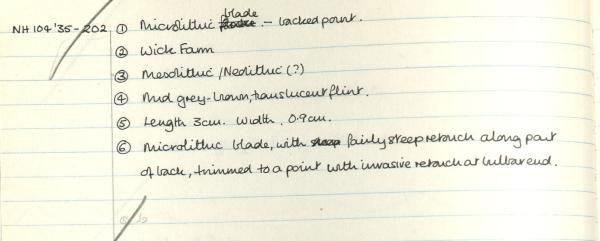 NH 104'35-202. ① Microlithic blade - backed point.
② Wick Farm
③ Mesolithic / Neolithic (?)
④ Mid grey-brown, translucent flint.
⑤ Length 3cm. Width. 0.9cm.
⑥ Microlithic blade, with fairly steep retouch along part
of back, trimmed to a point with invasive retouch at bulbar end.